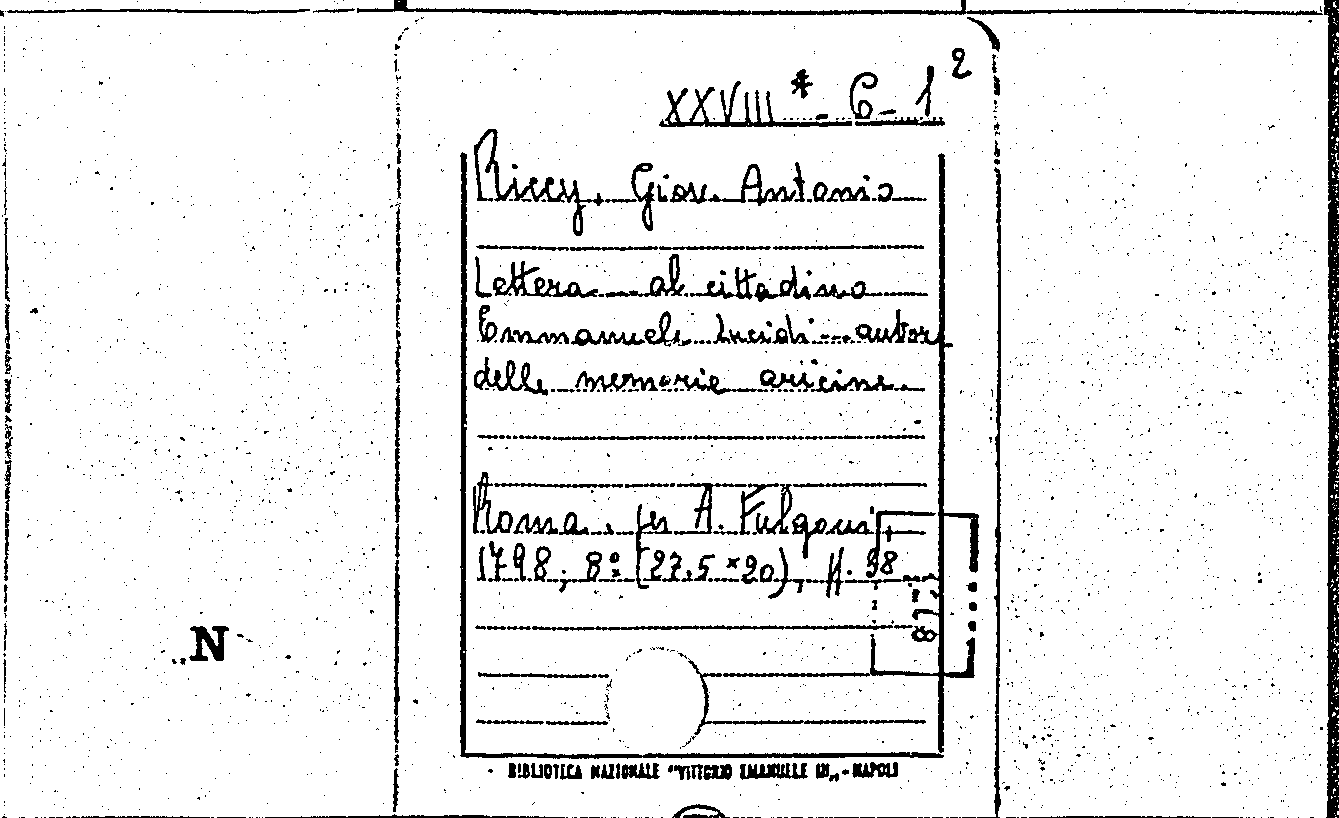 XXVIII * - C - 1 2
Riccy, Giov. Antonio
Lettera al cittadino
Emmanuele Lucidi autore
delle memorie aricine.
Roma, per A. Fulgoni,
1798; 8º (27.5 × 20), p. 38
N
BIBLIOTECA NAZIONALE "VITTORIO EMANUELE III„ - NAPOLI